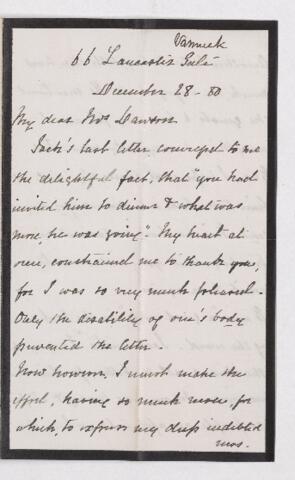 66 Lancaster Gate
December 28 - 80
My dear Mrs Dawson
Jack's last letter conveyed to me
the delightful fact, that "you had
invited him to dinner & what was
more, he was going". My heart at
once, constrained me to thank you,
for I was so very much pleased.
Only the disability of one's body
prevented the letter.
Now however, I must make the
effort, having so much more, for
which, to express my deep indebted
ness.